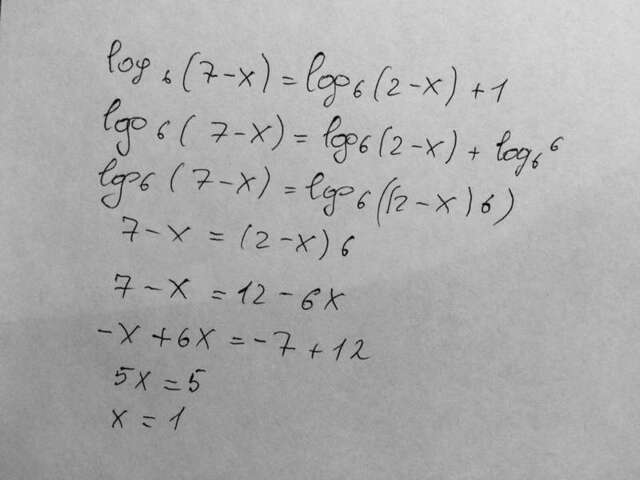 log₆(7-x)=log₆(2-x)+1
log₆(7-x)=log₆(2-x)+log₆6
log₆(7-x)=log₆((2-x)6)
7-x=(2-x)6
7-x=12-6x
-x+6x=-7+12
5x=5
x=1